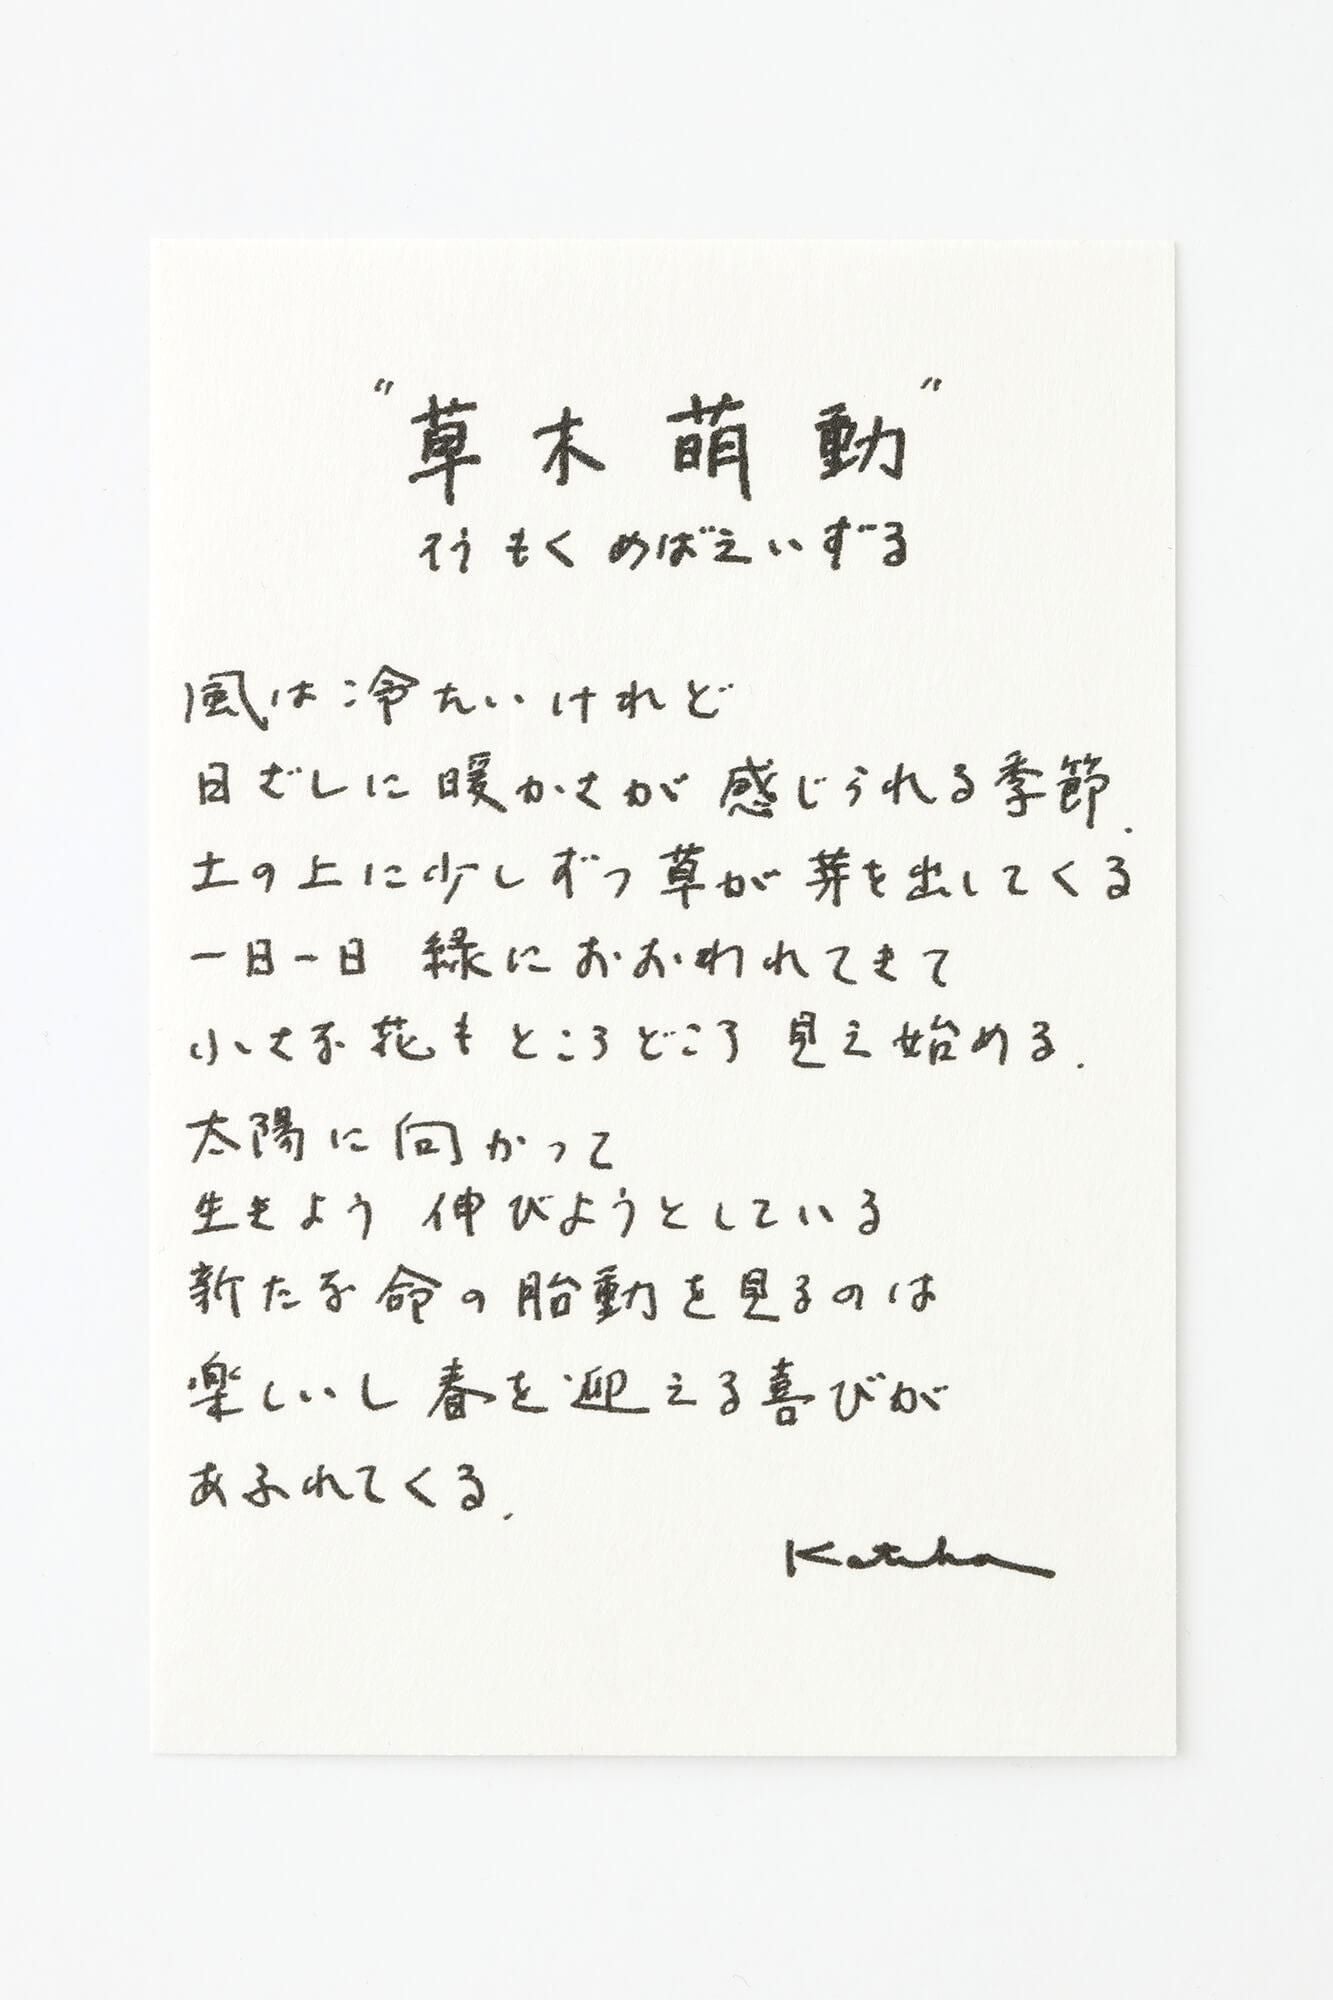 "草木萌動"
そうもく めばえいずる
風は冷たいけれど
日ざしに暖かさが 感じられる季節.
土の上に少しずつ草が 芽を出してくる
一日一日 緑におおわれてきて
小さな花も ところどころ 見え始める.
太陽に向かって
生きよう 伸びようとしている
新たな命の胎動を見るのは
楽しいし春を迎える喜びが
あふれてくる.